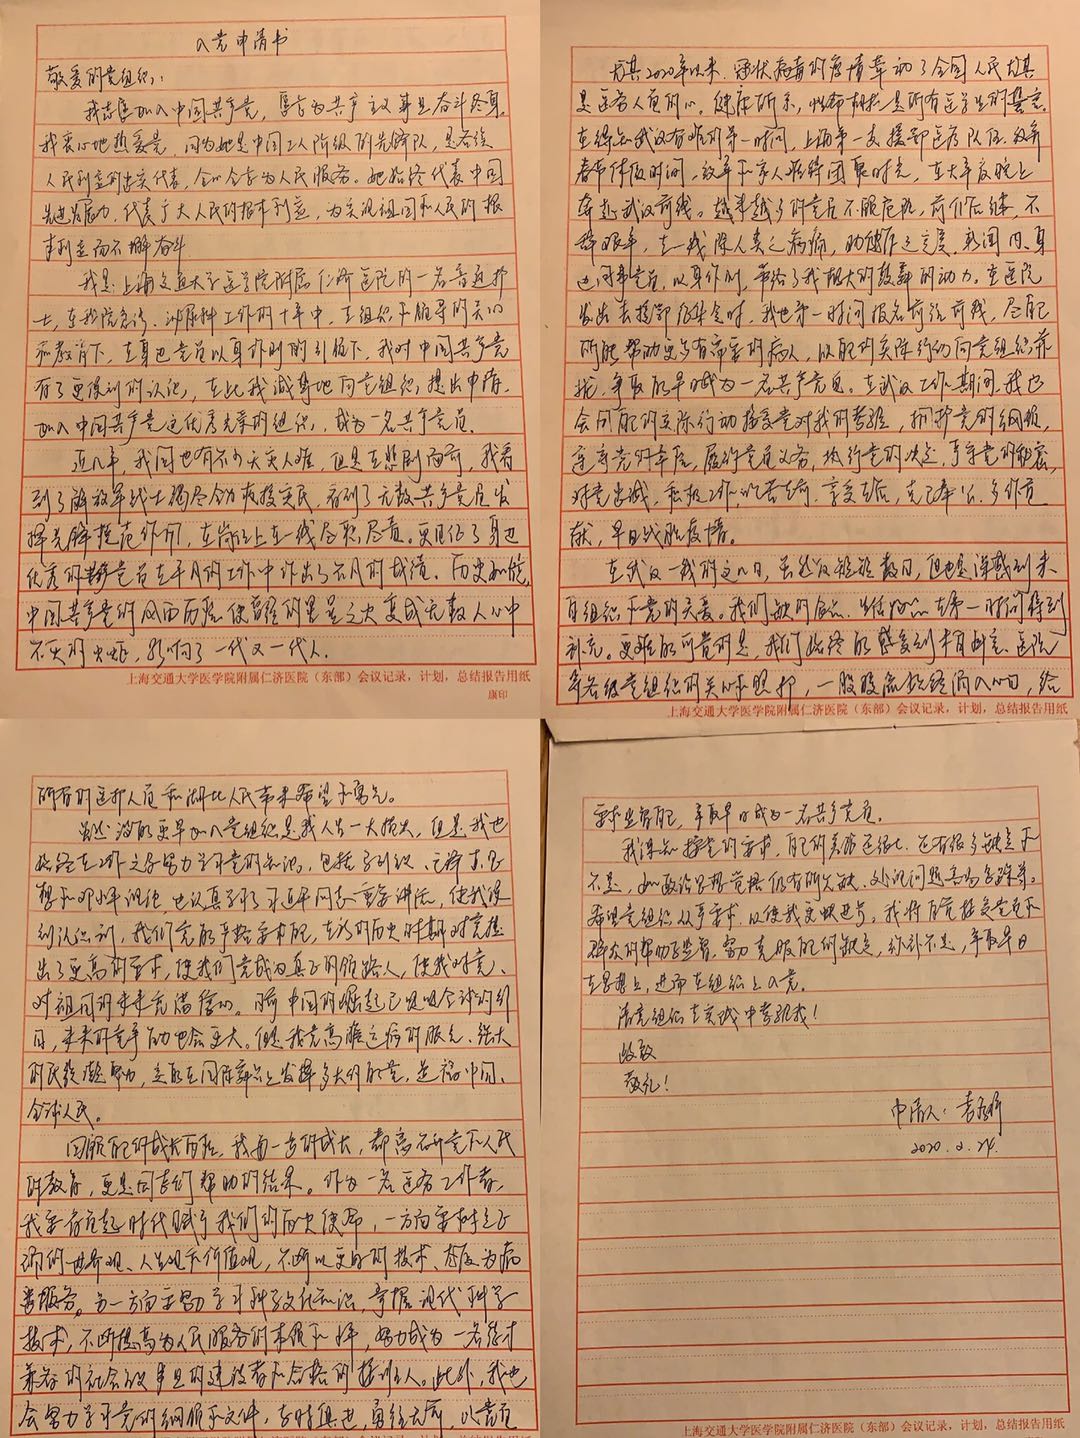 入党申请书
敬爱的党组织:
我志愿加入中国共产党,愿意为共产主义事业奋斗终身。
我衷心地热爱党,因为她是中国工人阶级的先锋队,是各族
人民利益的忠实代表,全心全意为人民服务。她始终代表中国
先进 力,代表广大人民的根本利益,为实现祖国和人民的根
本利益而不懈奋斗
我是上海交通大学医学院附属仁济医院的一名普通护
士,在我院急诊、泌尿科工作的十年中,在组织和领导的关心
和教育下,在身边党员以身作则的引领下,我对中国共产党
有了更深刻的认识,在此我诚挚地向党组织提出申请,
加入中国共产党这优秀光荣的组织,成为一名共产党员。
近几年,我国也有不少天灾人难,但是在悲剧面前,我看
到了解放军战士竭尽全力救援灾民,看到了无数共产党员发
挥先锋模范作用,在岗位上在一线尽职尽责。更见任了身边
优秀的 党员在平凡的工作中作出了不凡的成绩。历史如镜,
中国共产党的风雨历程使曾经的星星之火变成无数人心中
不灭的火炬,影响了一代又一代人。
上海交通大学医学院附属仁济医院(东部)会议记录,计划,总结报告用纸
康印
尤其2020年以来,冠状病毒的疫情牵动了全国人民尤其
是医务人员的心。健康所系,性命相托是所有医学生的誓言。
在得知武汉有难的第一时间,上海第一支援鄂医疗队伍放弃
春节休假时间,放弃和家人难得团聚时光,在大年夜晚上
奔赴武汉前线。越来越多的党员不顾危险,前仆后继,不
辞艰辛,在一线除人类之病痛,助健康之完美,新闻内、身
边同事党员,以身作则,带给了我很大的鼓舞的动力。在医院
发出去援鄂应集令时,我也第一时间报名前往前线,尽自己
所能帮助更多有需要的病人,以自己的实际行动向党组织靠
拢,争取能早日成为一名共产党员。在武汉工作期间,我也
会用自己的实际行动接受党对我的考验,拥护党的纲领,
遵守党的章程,履行党员义务,执行党的决定,严守党的秘密,
对党忠诚,积极工作,吃苦在前,享受在后,克己奉公,多作贡
献,早日战胜疫情。
在武汉一线的这几日,虽然仅短短数日,但也是深感到来
自组织和党的关爱。我们缺的食品、生活物品在第一时间得到
补充。更难能可贵的是,我们始终能感受到来自 、医院
等各级党组织的关心和照护,一股股 流入心田,给
上海交通大学医学院附属仁济医院(东部)会议记录,计划,总结报告用纸
所有的医护人员和湖北人民带来希望和曙光。
虽然没能更早加入党组织是我人生一大损失,但是我也
始终在工作之余努力学习党的知识,包括 、毛泽东思
想和邓小平理论,也认真学习了习近平同志重要讲话,使我深
刻认识到,我们党能严格要求自己,在新的历史时期对党提
出了更高的要求,使我们党成为真正的领路人,使我对党、
对祖国的未来充满信心。目前中国的崛起已吸引全球的引
目,未来的竞争力也会更大。但我党高瞻远瞩的眼光、强大
的民族凝聚力,定能在国际舞台上发挥多大的能量,造福中国、
全球人民。
回顾自己的成长历程,我每一步的成长,都离不开党和人民
的教育,更是同志们帮助的结果。作为一名医务工作者,
我要肩负起时代赋予我们的历史使命,一方面要树立正
确的世界观、人生观和价值观,不断以更好的技术、态度为病
患服务。另一方面要努力学习科学文化知识,掌握现代科学
技术,不断提高为人民服务的本领和水平,努力成为一名德才
兼备的社会主义事业的建设者和合格的接班人。此外,我也
会努力学习党的纲领和文件,与时俱进,勇往直前,以党员
要求坐骨自己,争取早日成为一名共产党员。
我深知按党的要求,自己的差距还很大,还有很多缺点和
不足,如政治思想觉悟仍有所欠缺、处理问题 等。
希望党组织从严要求,以使我更快进步。我将自觉接受党员和
群众的帮助与监督,努力克服自己的缺点,弥补不足,争取早日
在思想上,进而在组织上入党。
请党组织在实践中考验我!
此致
敬礼!
申请人:
2020.2.24.
上海交通大学医学院附属仁济医院(东部)会议记录,计划,总结报告用纸